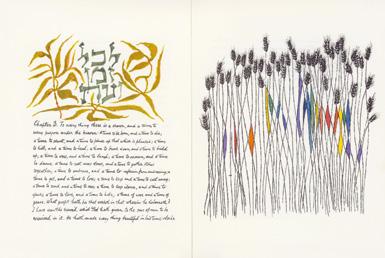 לכל
זמן
ועת
Chapter 3. To every thing there is a season, and a time to
every purpose under the heaven: A time to be born, and a time to die;
a time to plant, and a time to pluck up that which is planted; a time
to kill, and a time to heal; a time to break down, and a time to build
up; a time to weep, and a time to laugh; a time to mourn, and a time
to dance; a time to cast away stones, and a time to gather stones
together; a time to embrace, and a time to refrain from embracing; a
time to get, and a time to lose; a time to keep and a time to cast away;
a time to rend, and a time to sew; a time to keep silence, and a time to
speak; a time to love, and a time to hate; a time of war, and a time of
peace. What profit hath he that worketh in that wherein he laboureth?
I have seen the travail, which God hath given to the sons of men to be
exercised in it. He hath made every thing beautiful in his time: also he